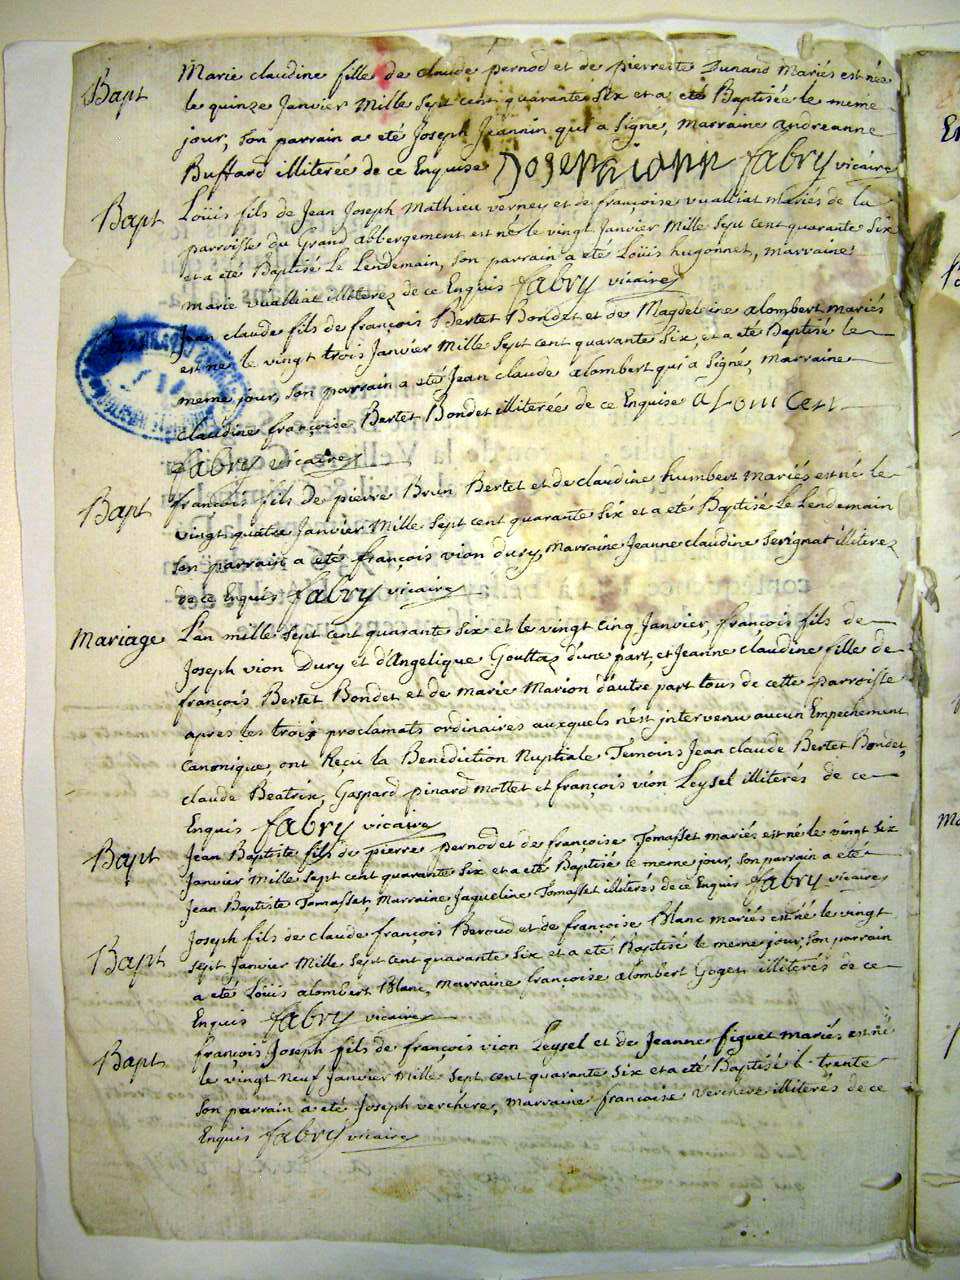 Bapt
Marie claudine fille de claude pernod et de pierrette Dunand Mariés est née
le quinze Janvier Mille Sept cent quarante Six et a eté Baptisée le meme
jour, Son parrain a eté Joseph Jeannin qui a Signé, Marraine andreanne
Buffard illiterée de ce Enquise Fabry vicaire
Bapt
Loüis fils de Jean Joseph Mathieu verney et de françoise vualliat mariés de la
parroisse du Grand abbergement est né le vingt Janvier Mille Sept cent quarante Six
et a eté Baptisé Le Lendemain, Son parrain a eté Loüis hugonnet, marraine
marie vualliat illiterez de ce Enquis fabry vicaire
Jean claude fils de françois Bertet Bondet et de Magdeleine alombert mariés
est né le vingt trois Janvier Mille Sept cent quarante Six, et a eté Baptisé le
meme jour, Son parrain a eté Jean claude alombert qui a Signé, Marraine
claudine françoise Bertet Bondet illiterée de ce Enquise
fabry vicaire
Bapt
françois fils de pierre Brun Bertet et de claudine humbert Mariés est né le
vingt quatre Janvier Mille Sept cent quarante Six et a eté Baptisé Le Lendemain
Son parrain a eté françois vion dury, Marraine Jeanne claudine Serignat illiterez
de ce Enquis fabry vicaire
Mariage
L'an mille Sept cent quarante Six et le vingt cinq Janvier, françois fils de
Joseph vion Dury et d'Angelique Gouttaz d'une part, et Jeanne claudine fille de
françois Bertet Bondet et de marie Marion d'autre part tous de cette parroisse
apres les trois proclamats ordinaires auxquels n'est jntervenu aucun Empechement
Canonique, ont Reçu la Benediction Nuptiale Temoins Jean claude Bertet Bondet,
claude Beatrix, Gaspard pinard mottet et françois vion Leysel illiterés de ce
Enquis fabry vicaire
Bapt
Jean Baptiste fils de pierre pernod et de françoise Tomasset mariés est né le vingt Six
Janvier Mille Sept cent quarante Six et a eté Baptisé le meme jour, Son parrain a eté
Jean Baptiste Tomasset, Marraine Jaqueline Tomasset illiterés de ce Enquis fabry vicaire
Bapt
Joseph fils de claude françois Beroud et de françoise Blanc mariés est né le vingt
Sept Janvier Mille Sept cent quarante Six et a eté Baptisé le meme jour, Son parrain
a eté Loüis alombert Blanc, Marraine françoise alombert Goget illiterés de ce
Enquis fabry vicaire
Bapt
françois Joseph fils de françois vion Leysel et de Jeanne figuet mariés est né
le vingt Neuf Janvier Mille Sept cent quarante Six et a eté Baptisé le trente
Son parrain a eté Joseph verchere, Marraine francoise verchere illiterés de ce
Enquis fabry vicaire